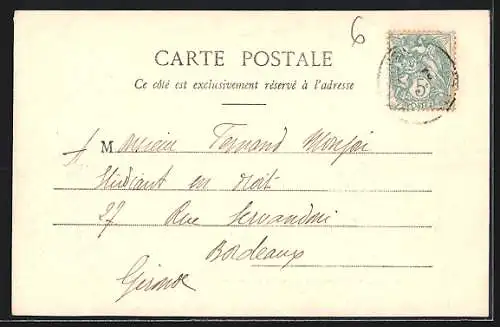 6
CARTE POSTALE
Ce côté est exclusivement réservé à l'adresse
5
Monsieur Fernand
Etudiant en droit
27 Rue Servandoni
Bordeaux
Gironde